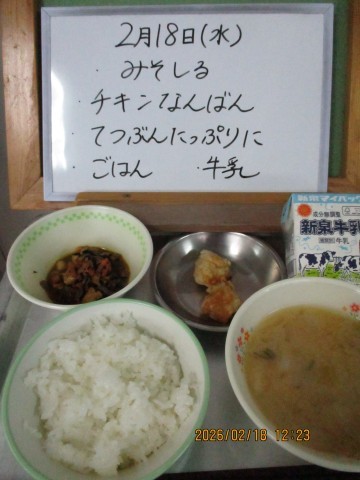 2月18日(水)
・みそしる
・チキンなんばん
・てつぶんたっぷりに
・ごはん ・牛乳
新泉マイパック
成分無調整
新泉牛乳
2026/02/18 12:23